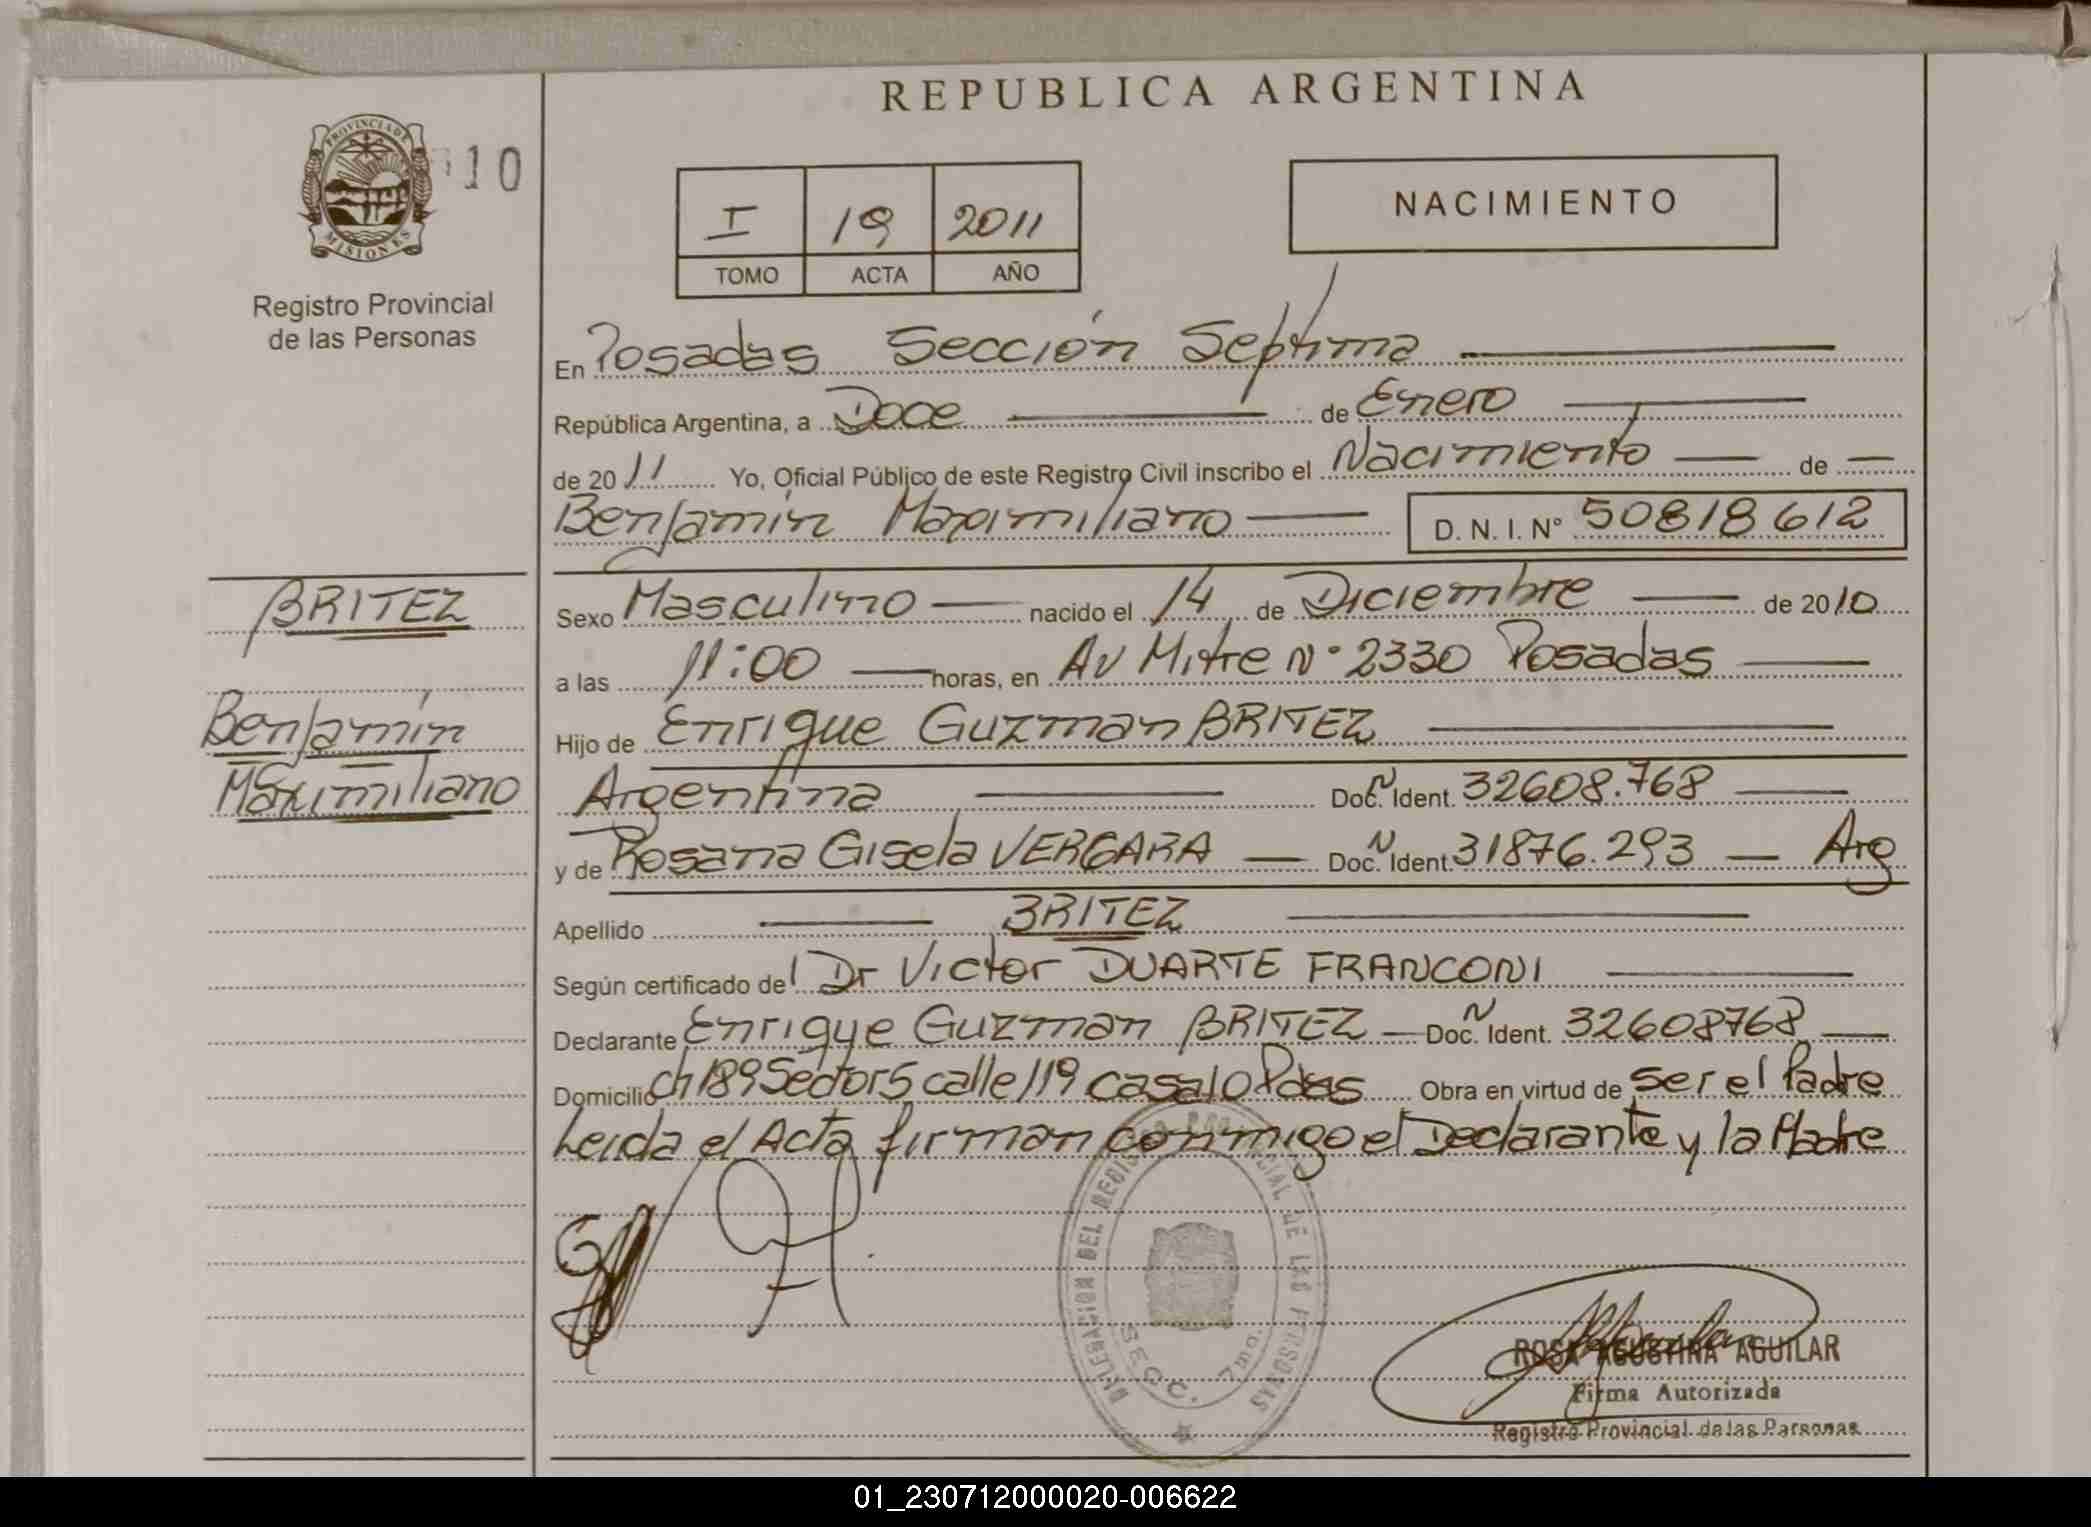 REPUBLICA ARGENTINA
PROVINCIA DE
MISIONES
10
Registro Provincial
de las Personas
I 19 2011
TOMO ACTA AÑO
NACIMIENTO
En Posadas Sección Séptima
República Argentina, a Doce de Enero
de 2011 Yo, Oficial Público de este Registro Civil inscribo el Nacimiento de
Benjamín Maximiliano D. N. I. N° 50818612
BRITEZ
Benjamín
Maximiliano
Sexo Masculino nacido el 14 de Diciembre de 2010
a las 11:00 horas, en Av Mitre N° 2330 Posadas
Hijo de Enrique Guzman BRITEZ
Argentina Doc. Ident. 32608.768
y de Rosana Gisela VERGARA Doc. Ident. 31876.293 Arg
Apellido BRITEZ
Según certificado del Dr Victor DUARTE FRANCONI
Declarante Enrique Guzman BRITEZ Doc. Ident. 32608768
Domicilio Ch 189 Sector 5 calle 119 casa 10 Pdas Obra en virtud de ser el Padre
Leida el Acta firman conmigo el Declarante y la Madre
DELEGACION DEL REGISTRO PROVINCIAL DE LAS PERSONAS
SECC. 7ma.
ROSA AGUSTINA AGUILAR
Firma Autorizada
Registro Provincial de las Personas
01_230712000020-006622